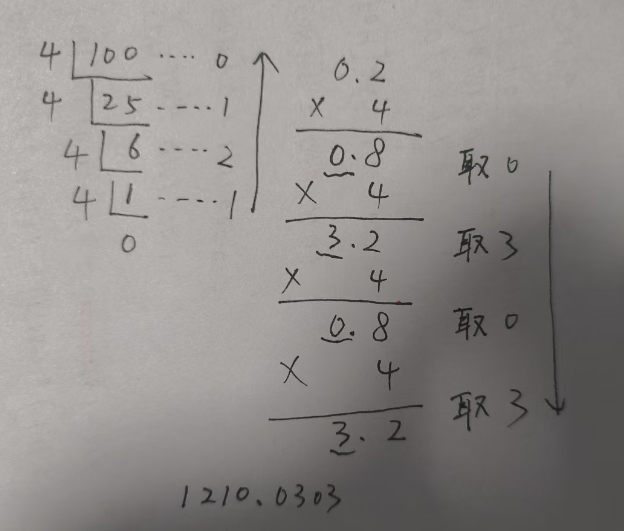 4 100 ···· 0
4 25 ····· 1
4 6 ···· 2
4 1 ····· 1
0
0.2
× 4
0.8 取0
× 4
3.2 取3
× 4
0.8 取0
× 4
3.2 取3
1210.0303